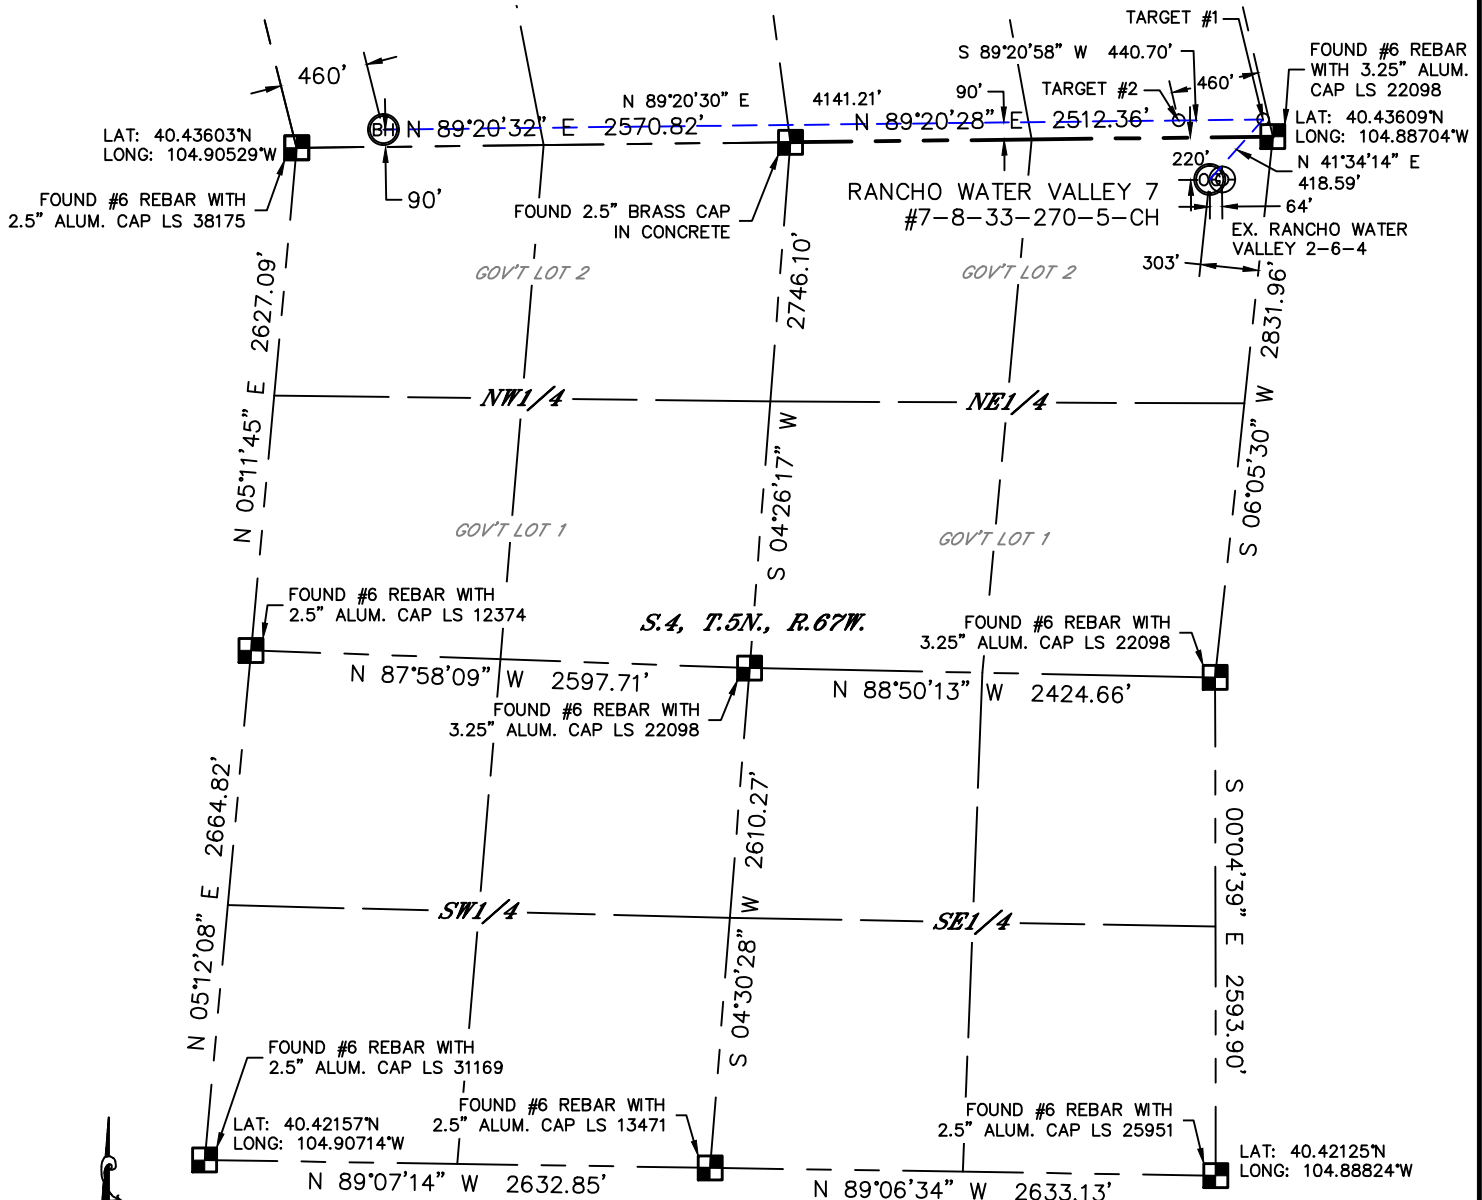 TARGET #1
S 89°20'58" W 440.70'
FOUND #6 REBAR
WITH 3.25" ALUM.
CAP LS 22098
460'
460'
90'
TARGET #2
N 89°20'30" E
4141.21'
LAT: 40.43603°N
LONG: 104.90529°W
BH
N 89°20'32" E 2570.82'
N 89°20'28" E 2512.36'
LAT: 40.43609°N
LONG: 104.88704°W
220'
N 41°34'14" E
418.59'
FOUND #6 REBAR WITH
2.5" ALUM. CAP LS 38175
90'
FOUND 2.5" BRASS CAP
IN CONCRETE
RANCHO WATER VALLEY 7
#7-8-33-270-5-CH
64'
EX. RANCHO WATER
VALLEY 2-6-4
303'
GOV'T LOT 2
GOV'T LOT 2
N 05°11'45" E 2627.09'
S 04°26'17" W 2746.10'
S 06°05'30" W 2831.96'
NW1/4
NE1/4
GOV'T LOT 1
GOV'T LOT 1
FOUND #6 REBAR WITH
2.5" ALUM. CAP LS 12374
S.4, T.5N., R.67W.
FOUND #6 REBAR WITH
3.25" ALUM. CAP LS 22098
N 87°58'09" W 2597.71'
N 88°50'13" W 2424.66'
FOUND #6 REBAR WITH
3.25" ALUM. CAP LS 22098
N 05°12'08" E 2664.82'
S 04°30'28" W 2610.27'
S 00°04'39" E 2593.90'
SW1/4
SE1/4
FOUND #6 REBAR WITH
2.5" ALUM. CAP LS 31169
LAT: 40.42157°N
LONG: 104.90714°W
FOUND #6 REBAR WITH
2.5" ALUM. CAP LS 13471
FOUND #6 REBAR WITH
2.5" ALUM. CAP LS 25951
LAT: 40.42125°N
LONG: 104.88824°W
N 89°07'14" W 2632.85'
N 89°06'34" W 2633.13'